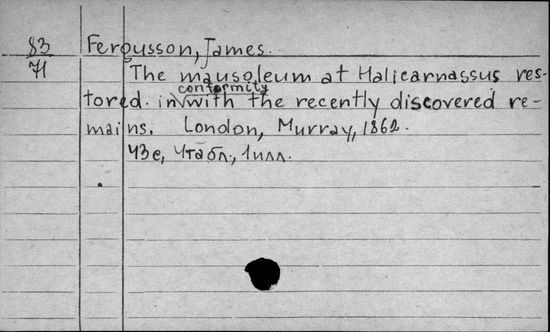 83
71
Fergusson, James.
The mausoleum at Halicarnassus res-
tored. in conformity with the recently discovered re-
mains. London, Murray, 1862.
43с, 4табл., 1илл.